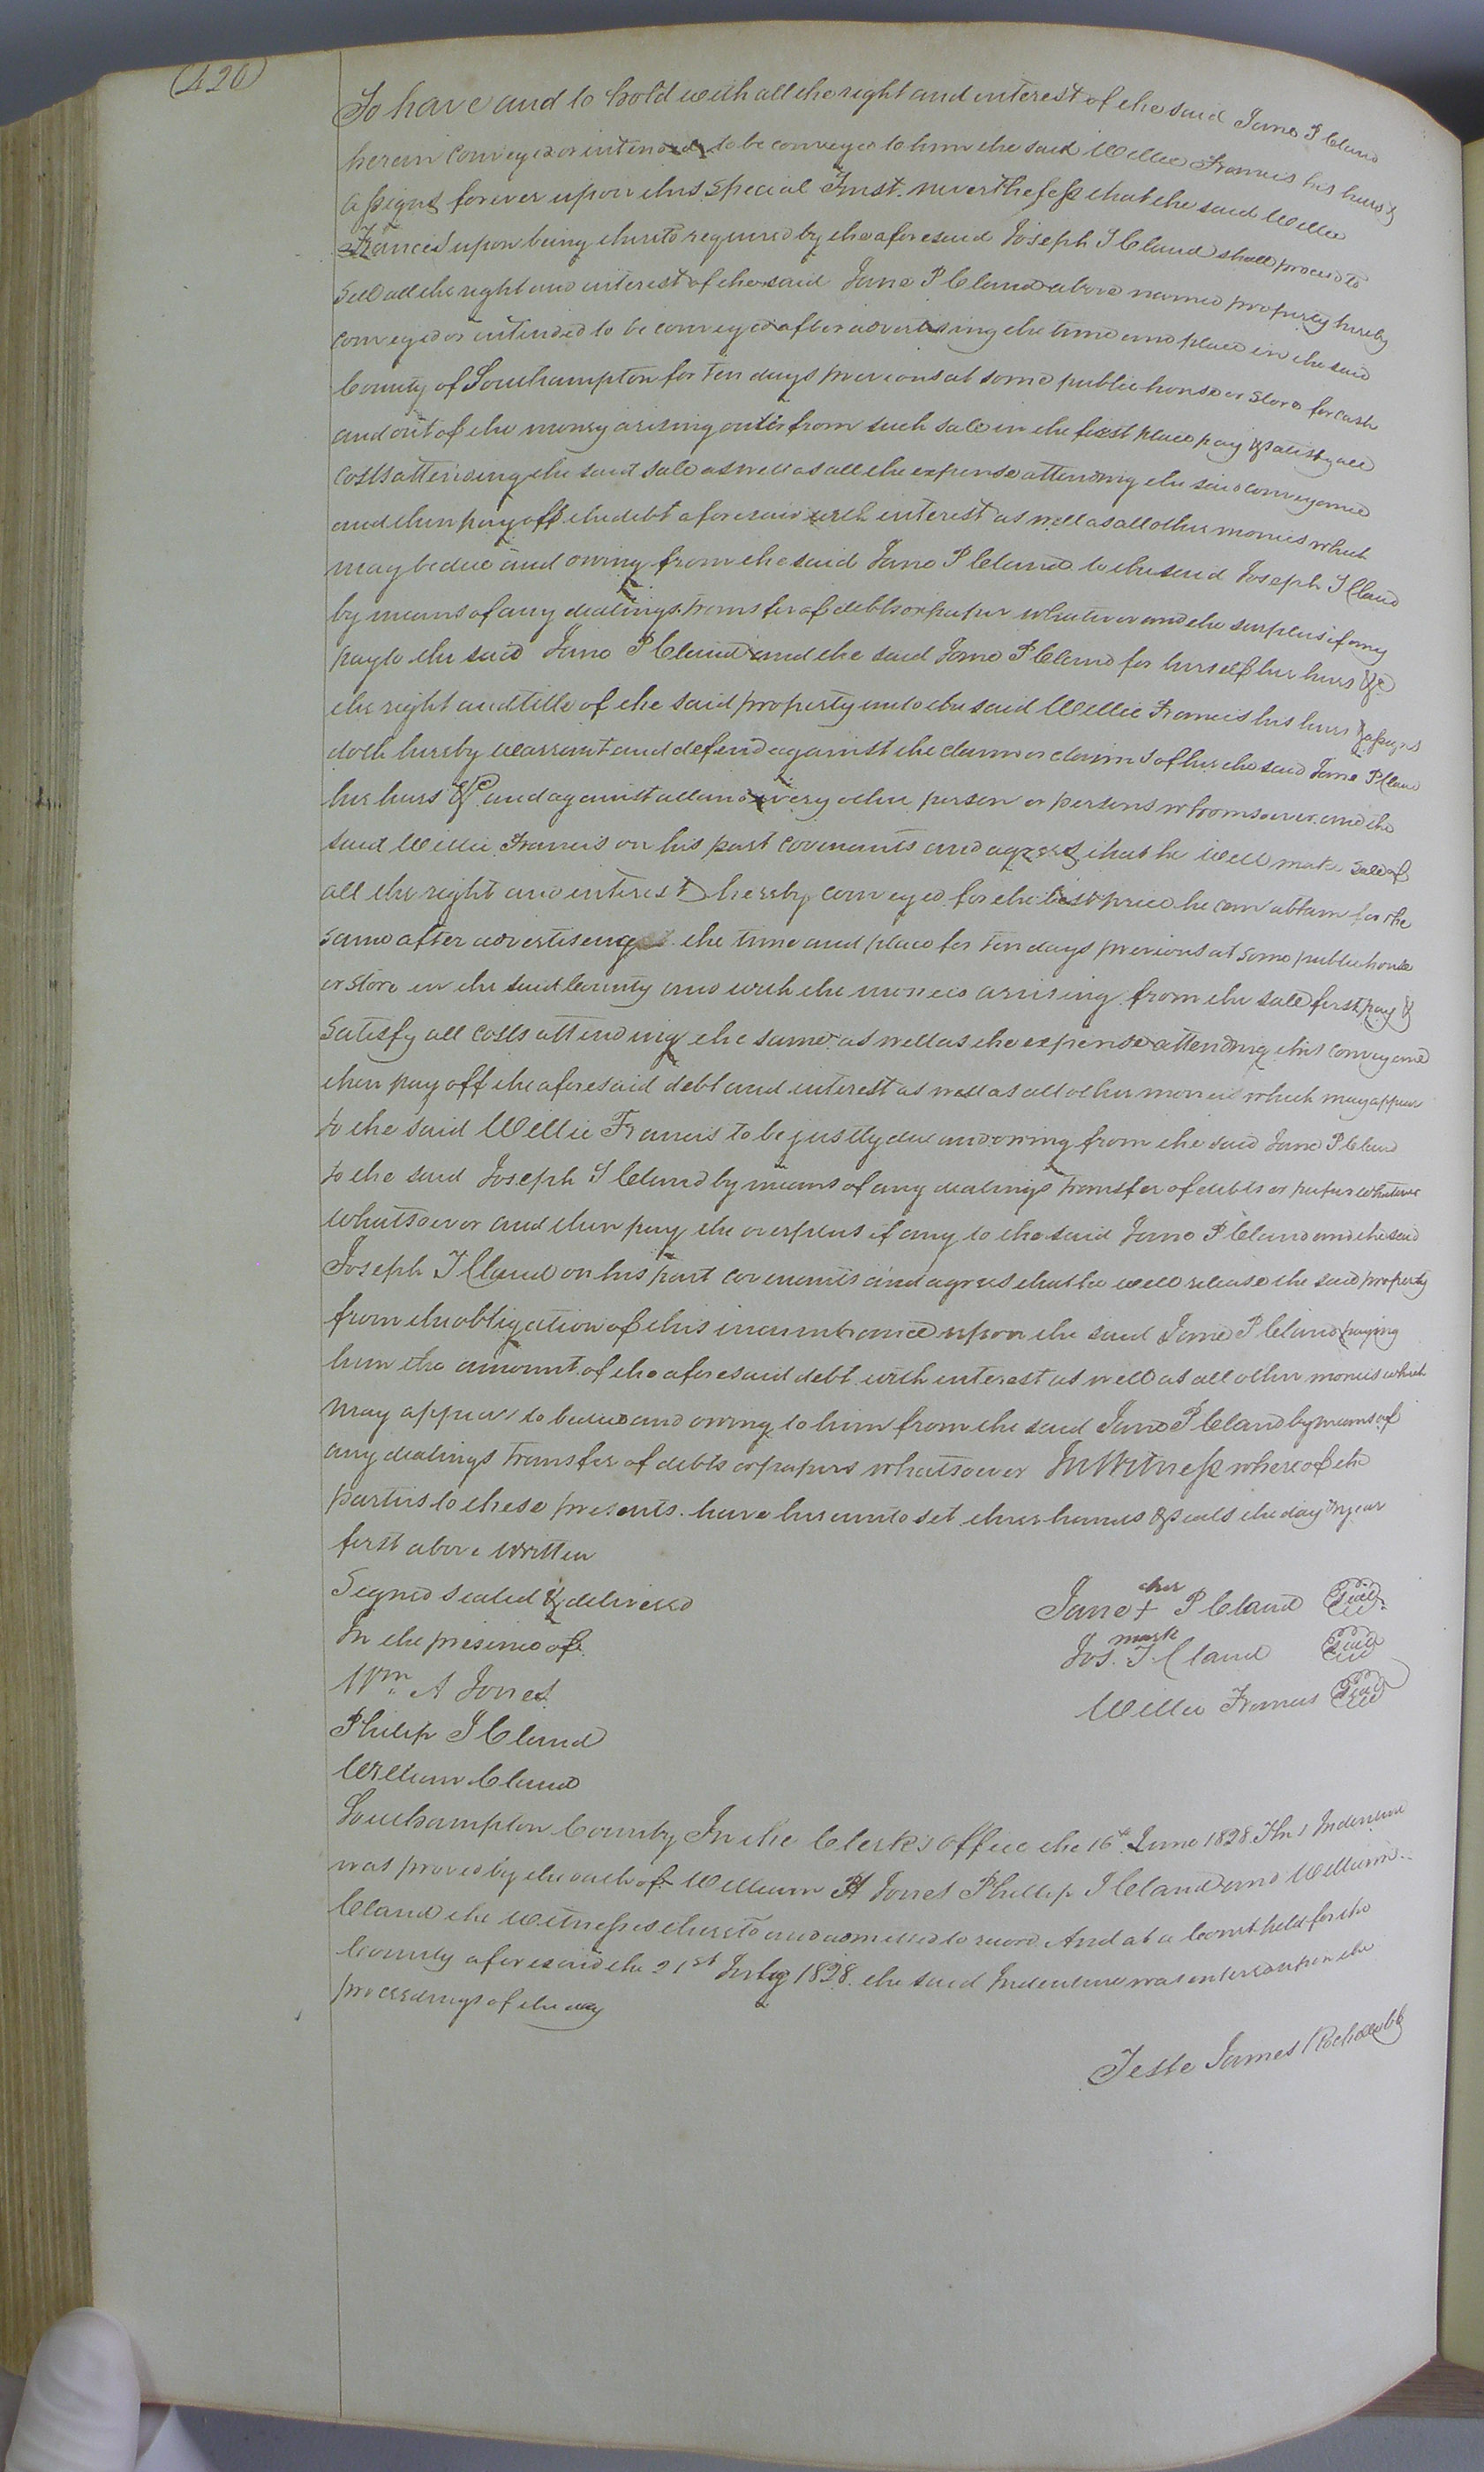 (420)
To have and to hold with all the right and interest of the said Jane P Claud
herein conveyed or intended to be conveyed to him the said Willie Francis his heirs &
assigns forever upon this special Trust nevertheless that the said Willie
Francis upon being thereto required by the aforesaid Joseph T Claud shall proceed to
Sell all the right and interest of the said Jane P Claud above named property hereby
conveyed or intended to be conveyed after advertising the time and place in the said
County of Southampton for ten days previous at some public house or store for cash
and out of the money arising from such sale in the first place pay & satisfy all
costs attending the said sale as well as all the expense attending the said conveyance
and then pay off the debt aforesaid with interest as well as all other monies which
may be due and owing from the said Jane P Claud to the said Joseph T Claud
by means of any dealings transfer of debts or paper whatever and the surplus if any
pay to the said Jane P Claud and the said Jane P Claud for herself her heirs &c
the right and title of the said property unto the said Willie Francis his heirs & assigns
doth hereby warrant and defend against the claim or claims of her the said Jane P Claud
her heirs &c and against all and every other person or persons whomsoever and the
said Willie Francis on his part covenants and agrees that he will make sale of
all the right and interest hereby conveyed for the best price he can obtain for the
same after advertiseing the time and place for ten days previous at some public house
or store in the said County and with the monies arising from the sale first pay &
satisfy all costs attending the same as well as the expense attending this conveyance
then pay off the aforesaid debt and interest as well as all other monies which may appear
to the said Willie Francis to be justly due and owing from the said Jane P Claud
to the said Joseph T Claud by means of any dealings transfer of debts or papers whatever
whatsoever and then pay the overplus if any to the said Jane P Claud and the said
Joseph T Claud on his part covenants and agrees that he will release the said property
from the obligation of this incumbrance upon the said Jane P Claud paying
him the amount of the aforesaid debt with interest as well as all other monies which
may appear to be due and owing to him from the said Jane P Claud by means of
any dealings transfer of debts or papers whatsoever In Witness whereof the
parties to these presents have hereunto set their hands & seals the day & year
first above written
Signed sealed & delivered
In the presence of
Wm A Jones
Philip T Claud
William Claud
her
Jane + P Claud Seal
mark
Jos. T. Claud Seal
Willie Francis Seal
Southampton County In the Clerk's office the 16th June 1828 This Indenture
was proved by the oath of William A Jones Phillip T Claud and William
Claud the witnesses thereto and admitted to record. And at a Court held for the
County aforesaid the 21st July 1828 the said Indenture was entered upon the
proceedings of the day
Teste James Rochelle CC